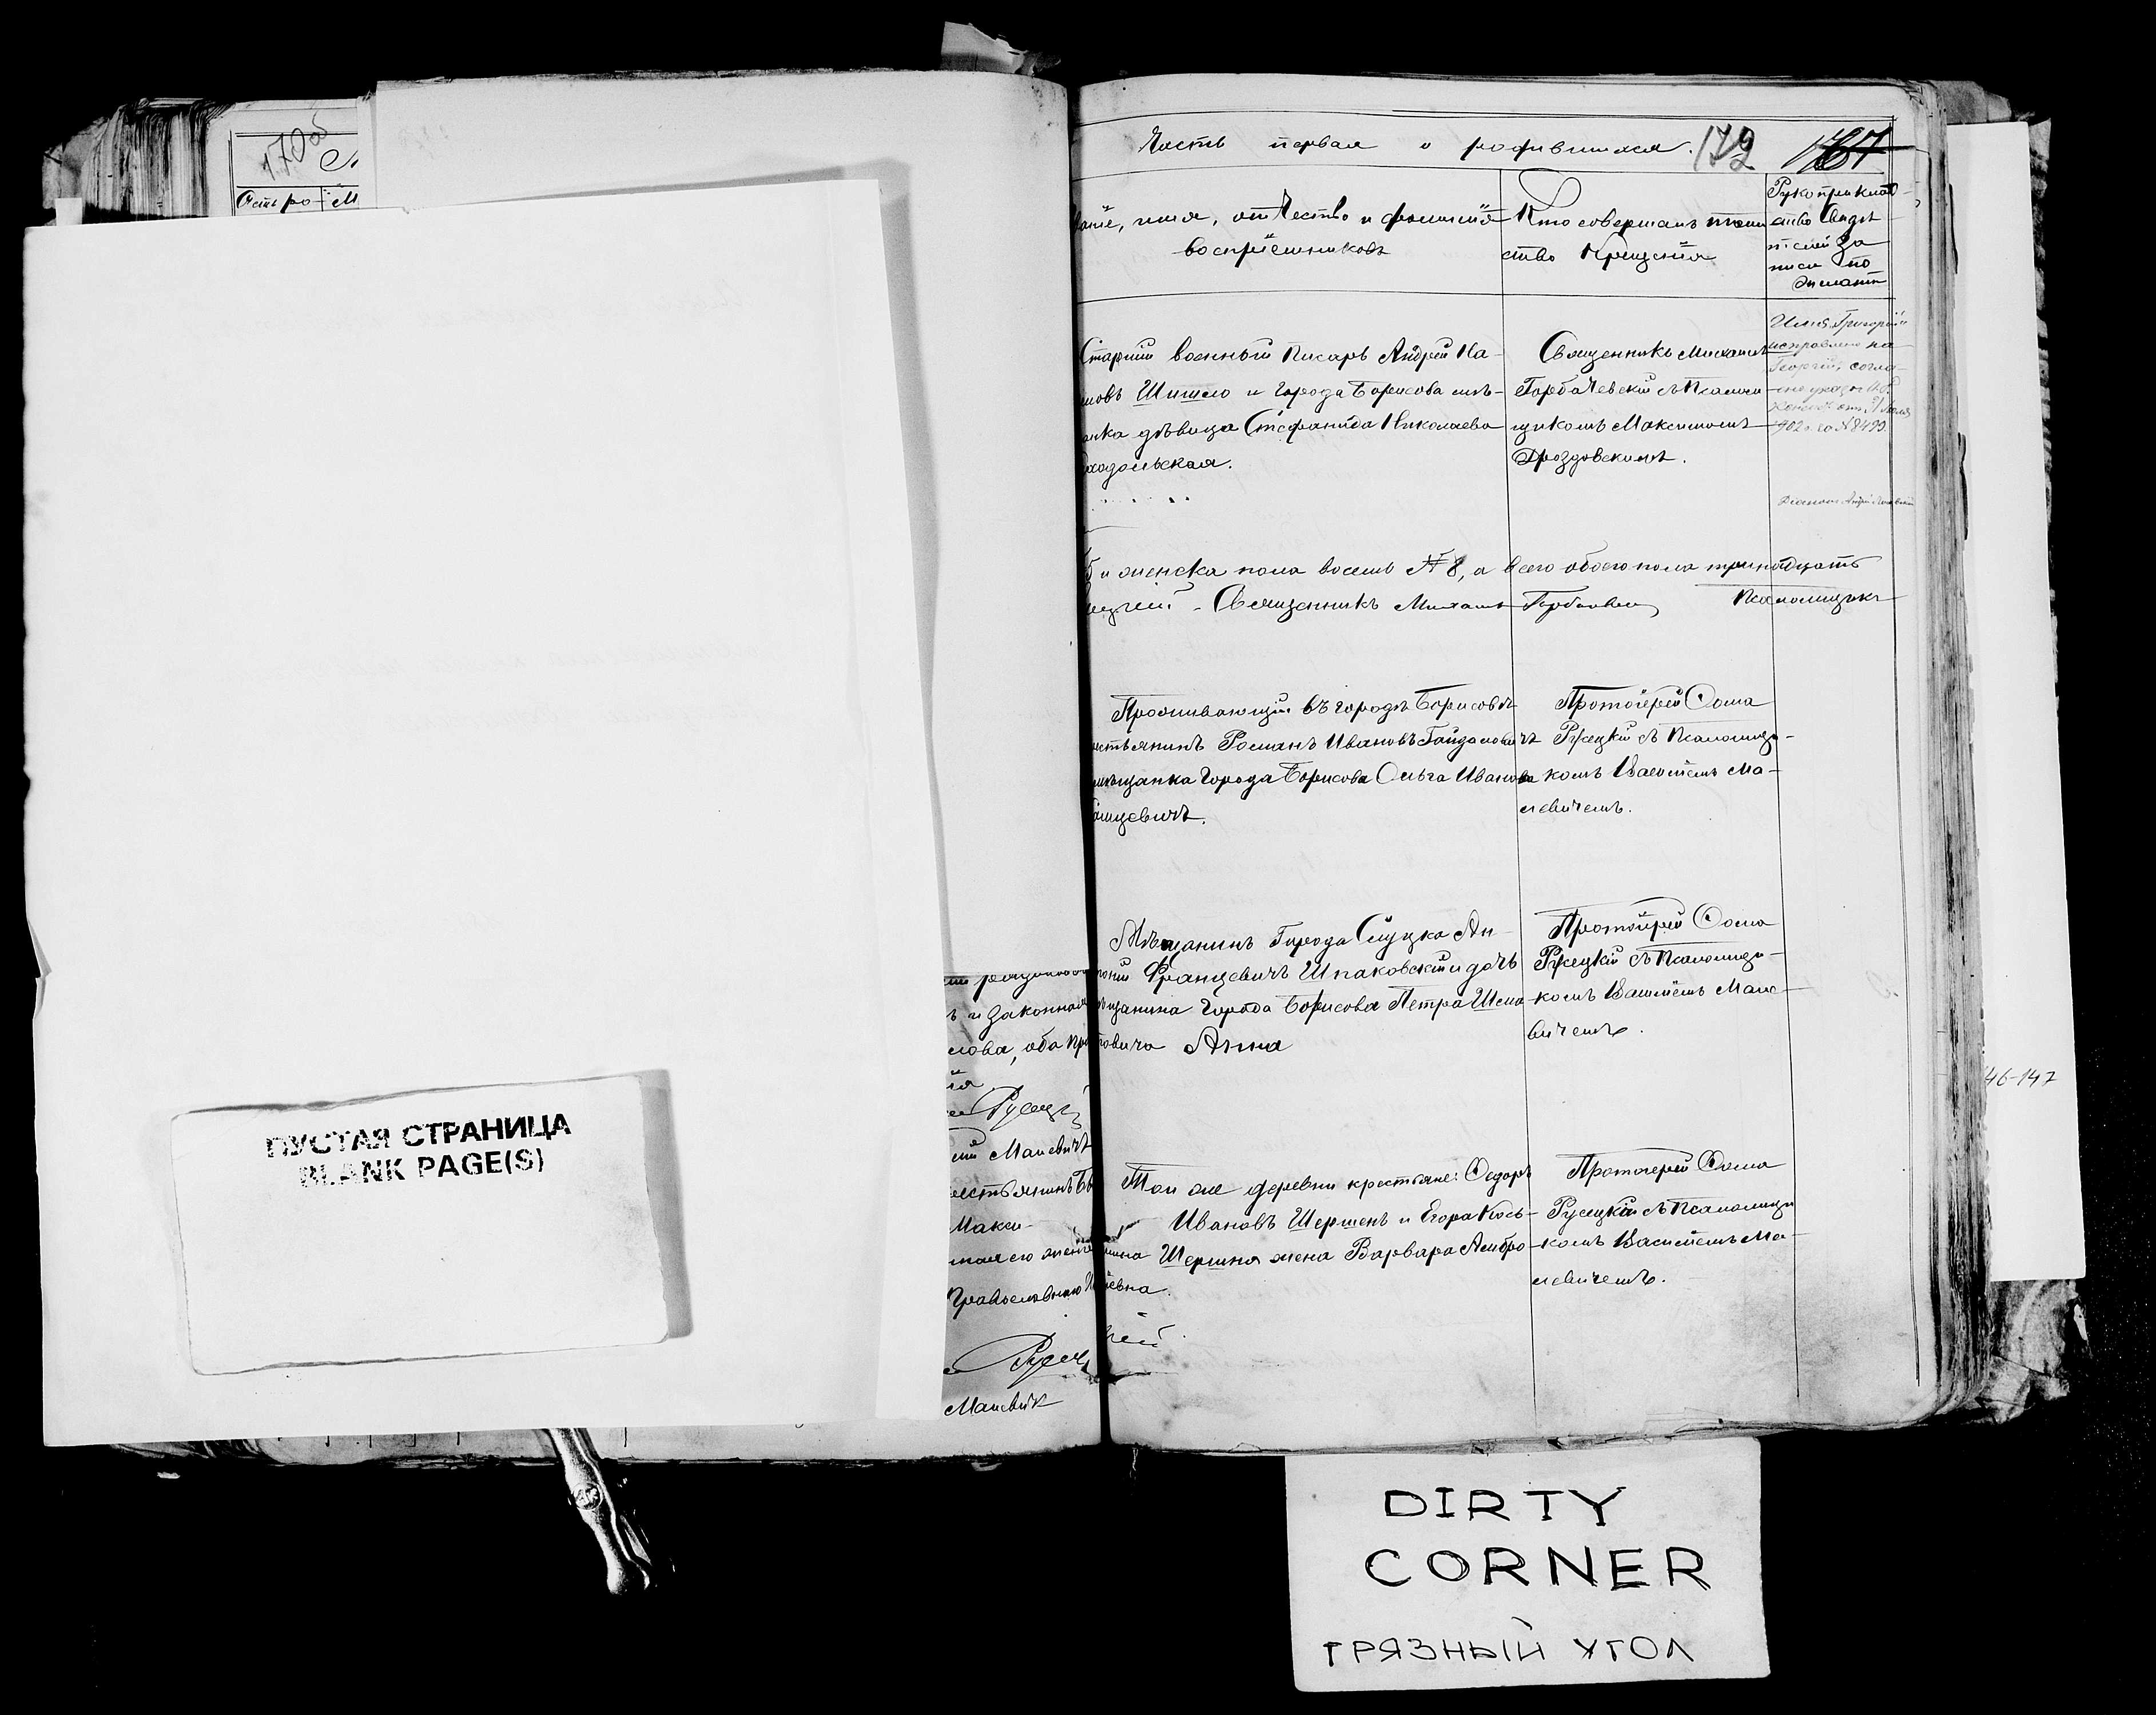 170об
Часть первая о родившихся.
172
167
Отъ ро-
званіе, имя, отчество и фамилія
воспріемниковъ
Кто совершалъ таин
ство Крещенія
Рукоприклад-
ство свидѣ
телей за
писи по
желанію
Старшій военный писарь Андрей Ка-
новъ Шишло и города Борисова мѣ-
анка дѣвица Стефанида Николаева
хадольская.
Священникъ Михаилъ
Горбачевскій съ Псаломщи
щикомъ Максимомъ
Дроздовскимъ.
Имя Григорій
исправлено на
Георгій, согла-
сно указу
1902 г. за № 8499
и женска пола восемь № 8, а всего обоего пола тринадцать
Священникъ Михаилъ Горбачевскій Псаломщикъ
Проживающій въ городѣ Борисовѣ
естьянинъ Романъ Ивановъ Гайдаловичъ
мѣщанка города Борисова Ольга Иванова
мцевичъ.
Протоіерей Ѳома
Русецкій съ Псаломщи-
комъ Василіемъ Ма-
левичемъ.
Мѣщанинъ города Слуцка Ан-
тоній Францевичъ Шпаковскій и дочь
ѣщанина города Борисова Петра Шема-
товича Анна
Протоіерей Ѳома
Русецкій съ Псаломщи-
комъ Василіемъ Мале-
вичемъ.
Той же деревни крестьяне: Ѳедоръ
Ивановъ Шершень и Егора Кось-
мина Шершня жена Варвара Амвро-
сіевна.
Протоіерей Ѳома
Русецкій съ Псаломщи
комъ Василіемъ Ма-
левичемъ.
ъ и законная
слова, оба пра
ія
Русецкій
ій Малевичъ
естьянинъ
Макси-
ная его жена
Православнаго
Русецкій
Малевичъ
46-147
ПУСТАЯ СТРАНИЦА
BLANK PAGE(S)
DIRTY
CORNER
ГРЯЗНЫЙ УГОЛ